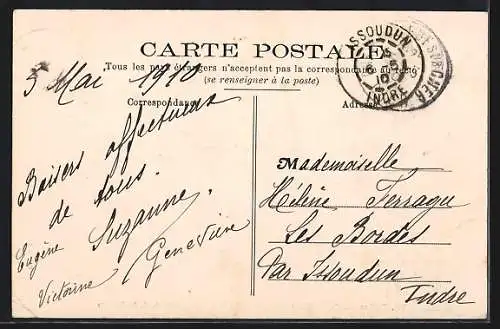 CARTE POSTALE
Tous les pays étrangers n'acceptent pas la correspondance au recto
(se renseigner à la poste)
Correspondance
Adresse
5 Mai 1910
Baisers affectueux
de tous.
Eugène Suzanne.
Victorine Geneviève
ISSOUDUN
5
10
INDRE
Mademoiselle
Hélène Ferragu
Les Bordes
Par Issoudun
Indre